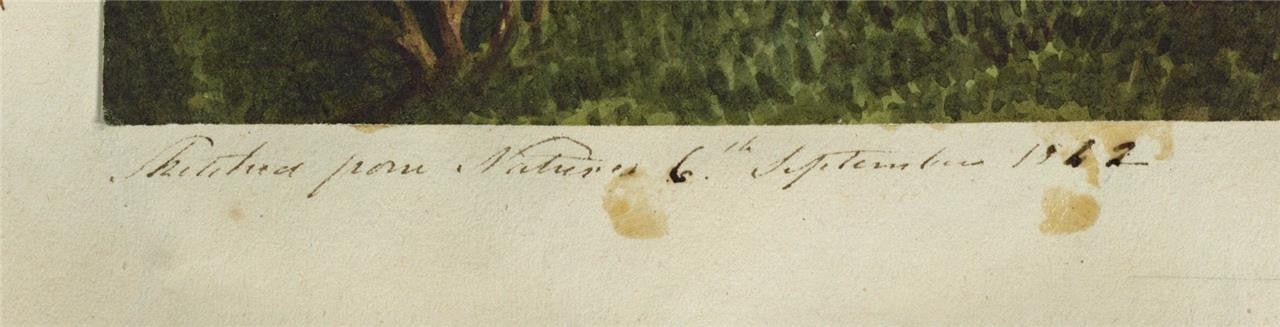 Sketched from Nature 6.th September 1822